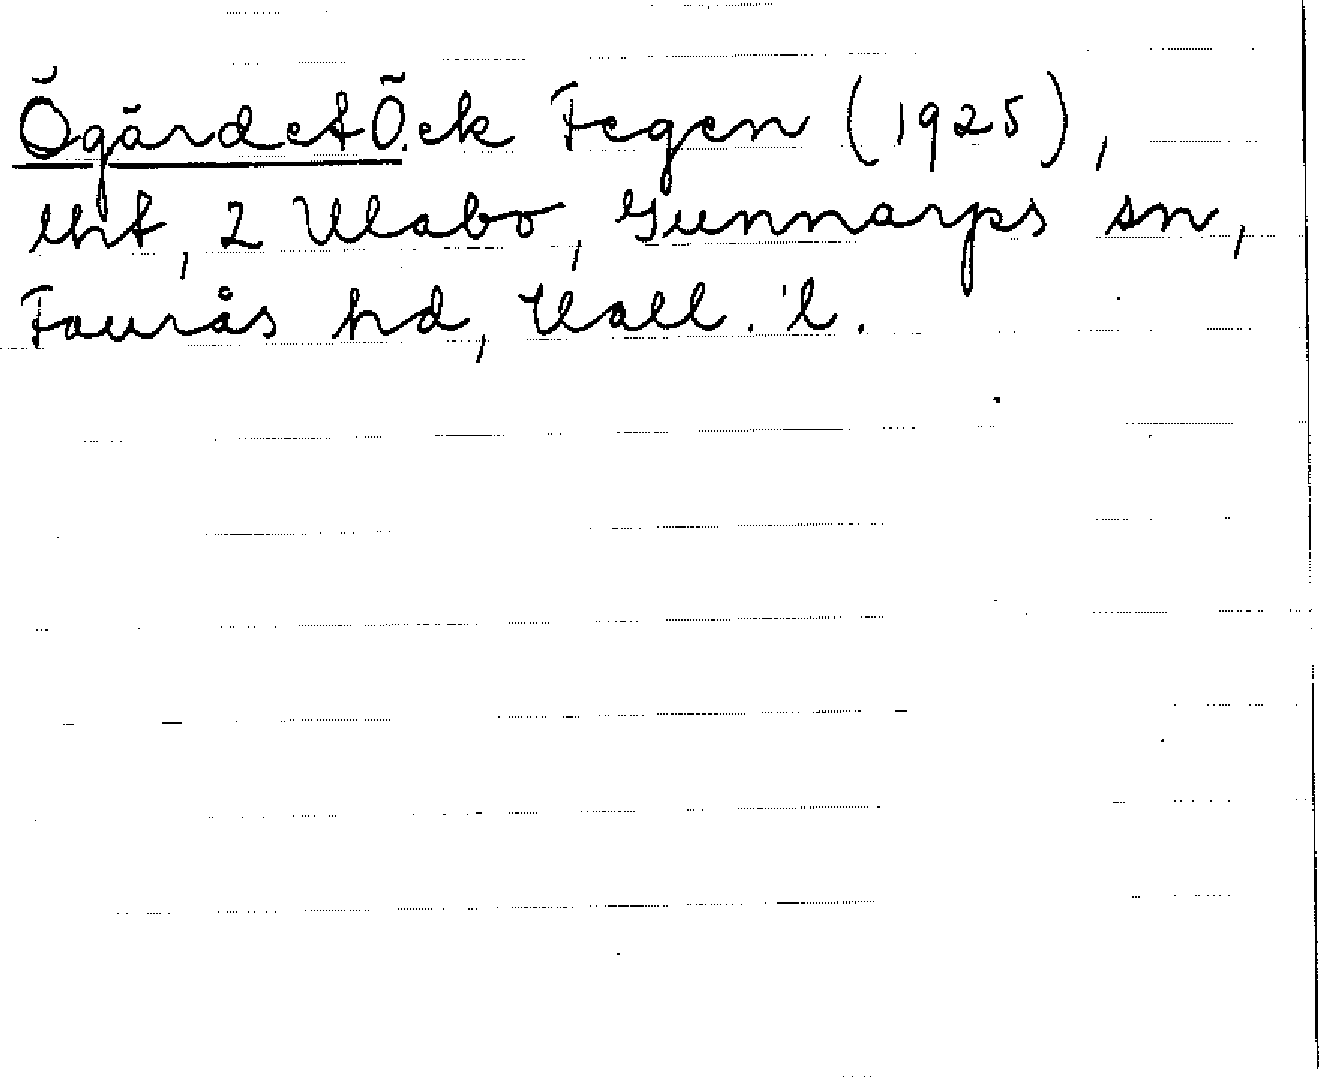 Ögärdet Ö. ek Fegen (1925),
lht, 2 Ulabo, Gunnarps sn,
Faurås hd, Hall. l.